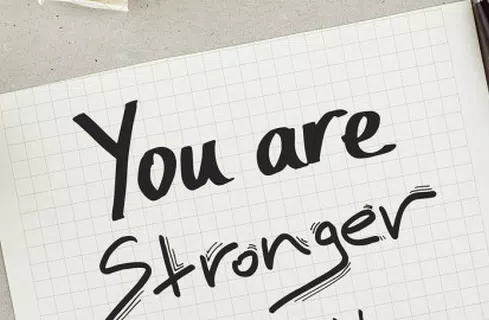 You are
Stronger